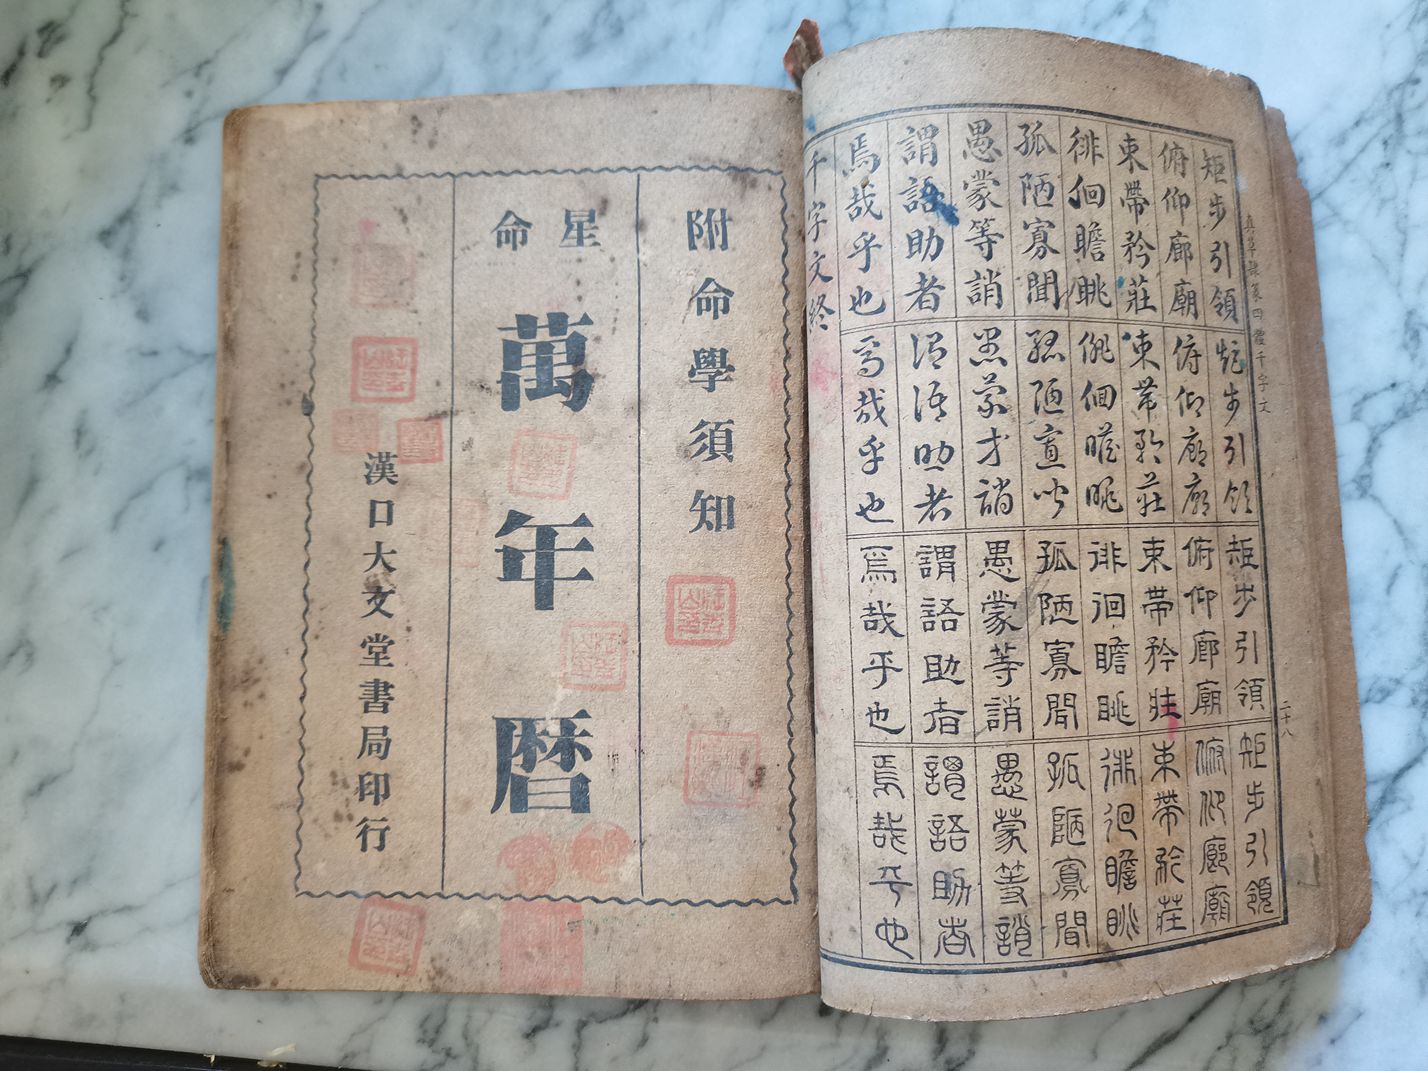 真草隸篆四體千字文 二十八
矩步引領 矩步引領 矩步引領 矩步引領
俯仰廊廟 俯仰廊廟 俯仰廊廟 俯仰廊廟
束帶矜莊 束帶矜莊 束帶矜莊 束帶矜莊
徘徊瞻眺 徘徊瞻眺 徘徊瞻眺 徘徊瞻眺
孤陋寡聞 孤陋寡聞 孤陋寡聞 孤陋寡聞
愚蒙等誚 愚蒙等誚 愚蒙等誚 愚蒙等誚
謂語助者 謂語助者 謂語助者 謂語助者
焉哉乎也 焉哉乎也 焉哉乎也 焉哉乎也
千字文終
附命學須知
星命
萬年暦
漢口大文堂書局印行